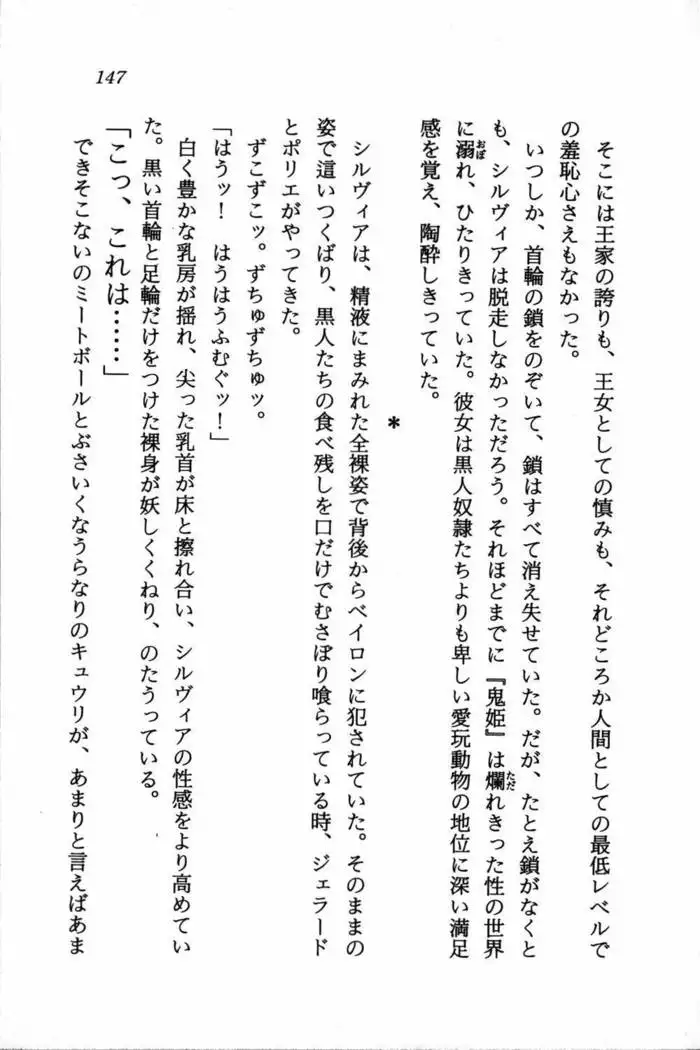 147
そこには王家の誇りも、王女としての慎みも、それどころか人間としての最低レベルで
の羞恥心さえもなかった。
いつしか、首輪の鎖をのぞいて、鎖はすべて消え失せていた。だが、たとえ鎖がなくと
も、シルヴィアは脱走しなかっただろう。それほどまでに『鬼姫』は爛れきった性の世界
に溺れ、ひたりきっていた。彼女は黒人奴隷たちよりも卑しい愛玩動物の地位に深い満足
感を覚え、陶酔しきっていた。
*
シルヴィアは、精液にまみれた全裸姿で背後からベイロンに犯されていた。そのままの
姿で這いつくばり、黒人たちの食べ残しを口だけでむさぼり喰らっている時、ジェラード
とポリエがやってきた。
ずこずこッ。ずちゅずちゅッ。
「はうッ！　はうはうふむぐッ！」
白く豊かな乳房が揺れ、尖った乳首が床と擦れ合い、シルヴィアの性感をより高めてい
た。黒い首輪と足輪だけをつけた裸身が妖しくくねり、のたうっている。
「こっ、これは……」
できそこないのミートボールとぶさいくなうらなりのキュウリが、あまりと言えばあま